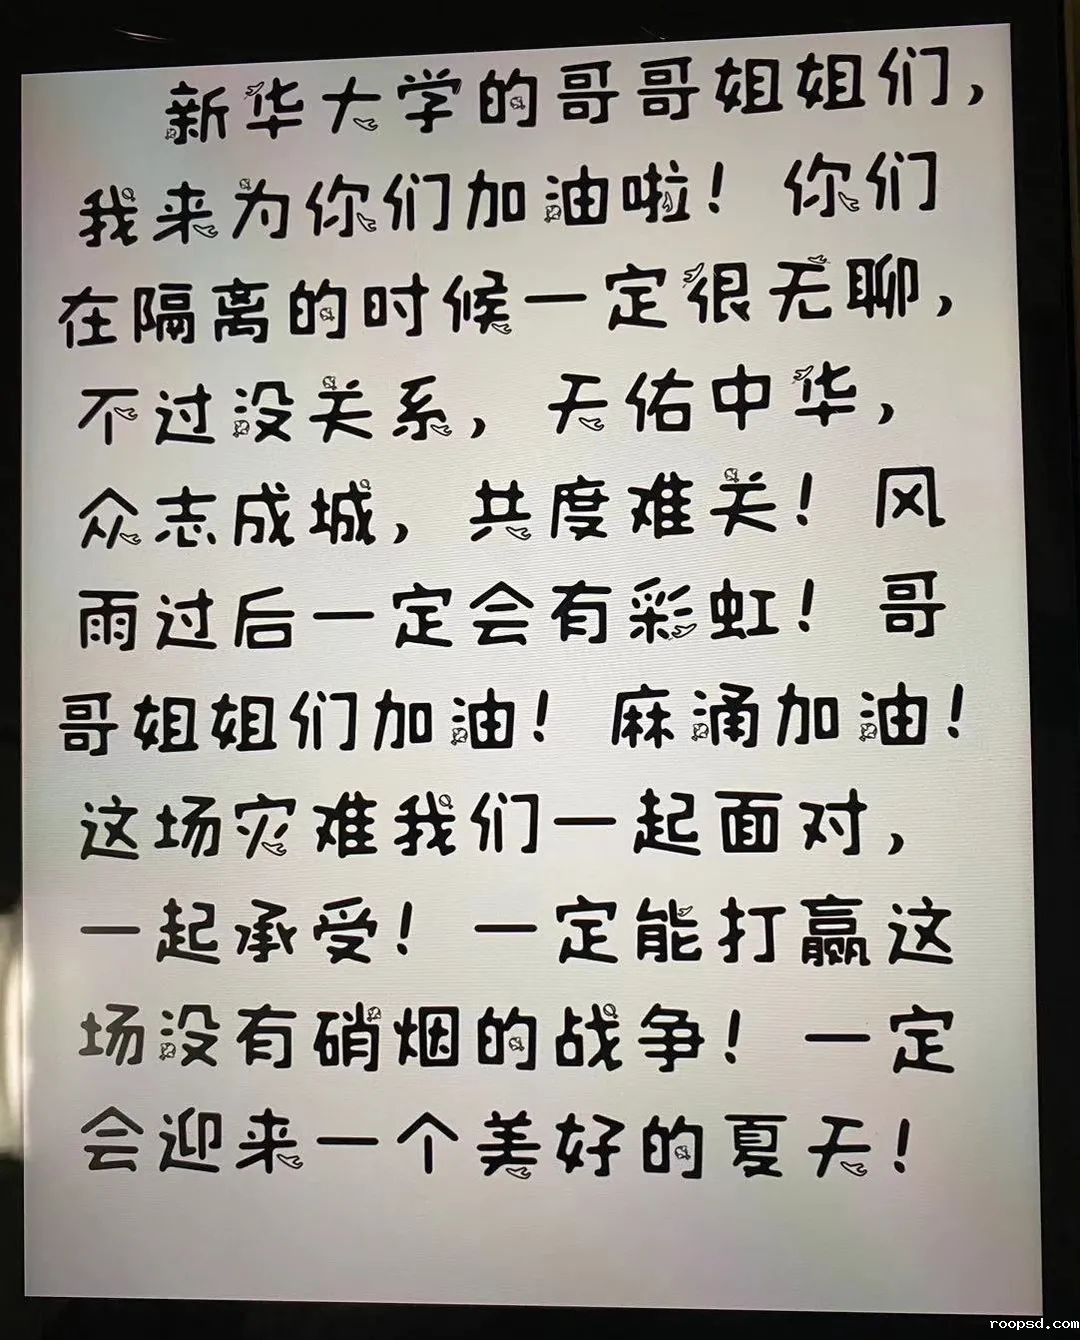 新华大学的哥哥姐姐们，
我来为你们加油啦！你们
在隔离的时候一定很无聊，
不过没关系，天佑中华，
众志成城，共度难关！风
雨过后一定会有彩虹！哥
哥姐姐们加油！麻涌加油！
这场灾难我们一起面对，
一起承受！一定能打赢这
场没有硝烟的战争！一定
会迎来一个美好的夏天！
roopsd.com